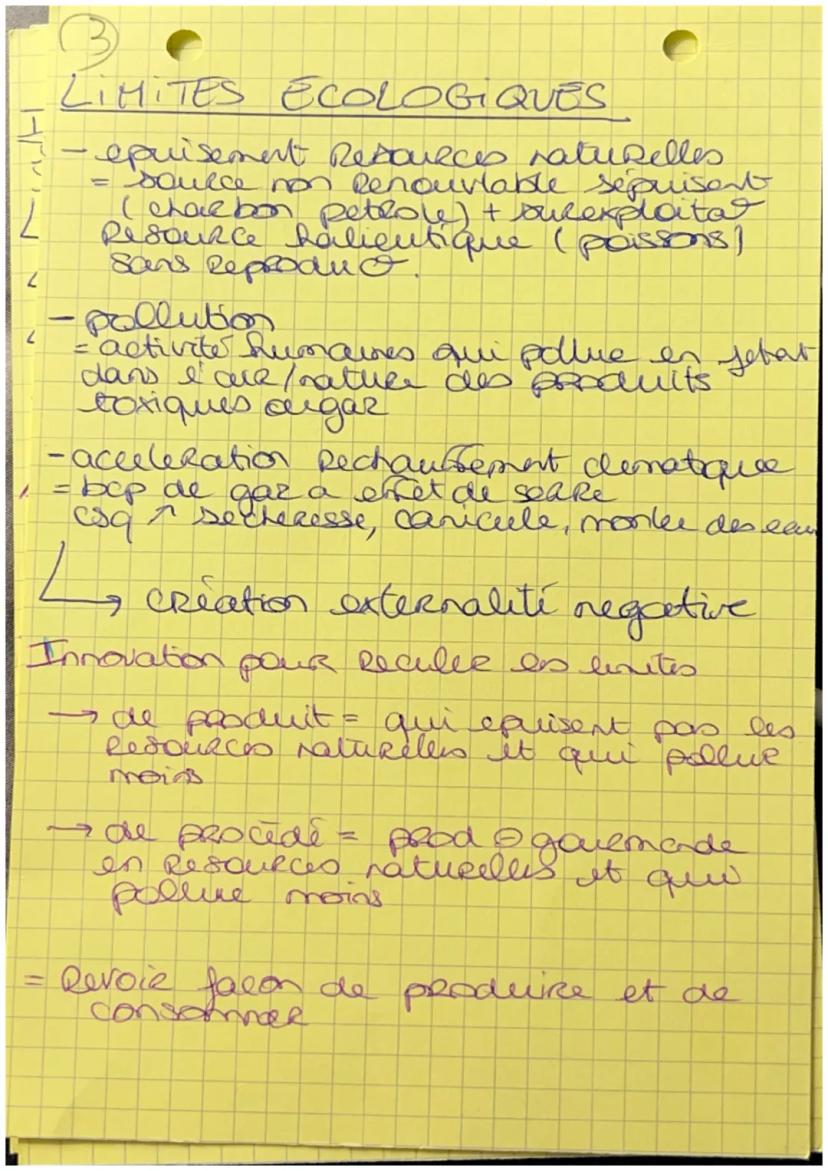 3
LIMITES ÉCOLOGIQUES
- epuisement Resources naturelles
= source non renouvlable sépuisent
(charbon petrole) + surexploitat°
Resource halieutique (poissons)
sans reproduct°.
- pollution
= activité humaines qui pollue en jetant
dans l'air/nature des produits
toxiques ou gaz
- acceleration rechauffement climatique
= bcp de gaz a effet de serre
csq ↗ sécheresse, canicule, montée des eau
↳ création externalité negative
Innovation pour reculer les limites
→ de produit = qui epuisent pas les
resources naturelles et qui pollue
moins
→ de procédé = prod ⊖ gourmande
en resources naturelles et qui
pollue moins
= Revoir façon de produire et de
consommer